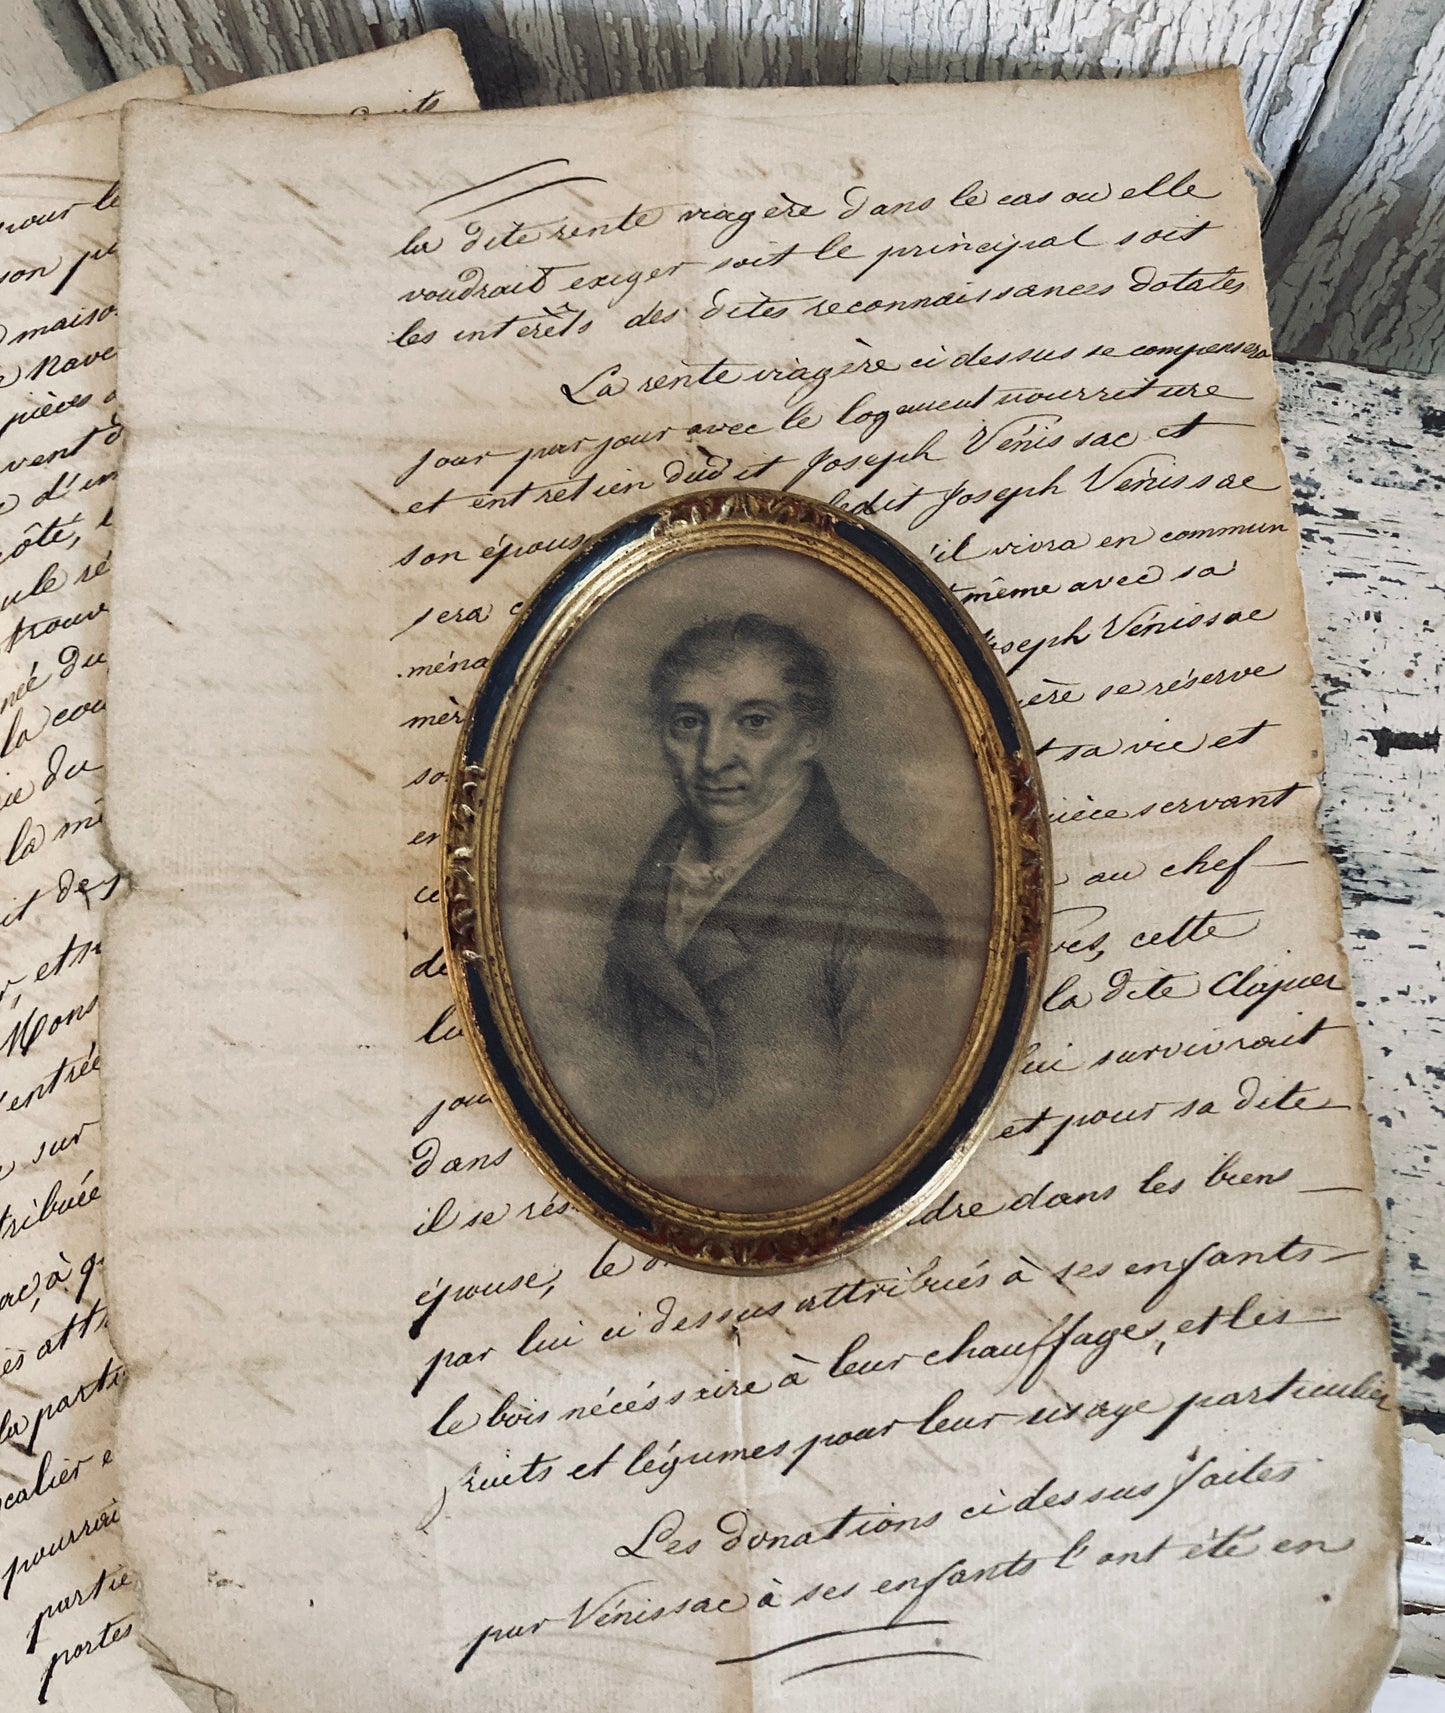 pour le
son
maiso
Nave
pièces
vent d
d'un
côté,
ule ré
trouv
né du
la cou
ie du
la mê
it des
r, et
Mons
'entrée
sur
tribuée
ac, à
ès att
la parti
calier e
pourrai
partie
portes
la dite rente viagère dans le cas ou elle
voudrait exiger soit le principal soit
les intérêts des dites reconnaissances dotales
La rente viagère ci dessus se compensera
jour par jour avec le logement nourriture
et entretien dudit Joseph Vénissac et
son épous ledit Joseph Vénissac
sera 'il vivra en commun
ména même avec sa
mèr oseph Vénissac
so ère se réserve
en t sa vie et
ce ièce servant
de au chef
la res, cette
jou la dite Claquer
dans lui survivrait
il se rés et pour sa dite
épouse, le dre dans les biens
par lui ci dessus attribués à ses enfants
le bois nécéssaire à leur chauffages, et les
fruits et légumes pour leur usage particulier
Les donations ci dessus faites
par Vénissac à ses enfants l'ont été en